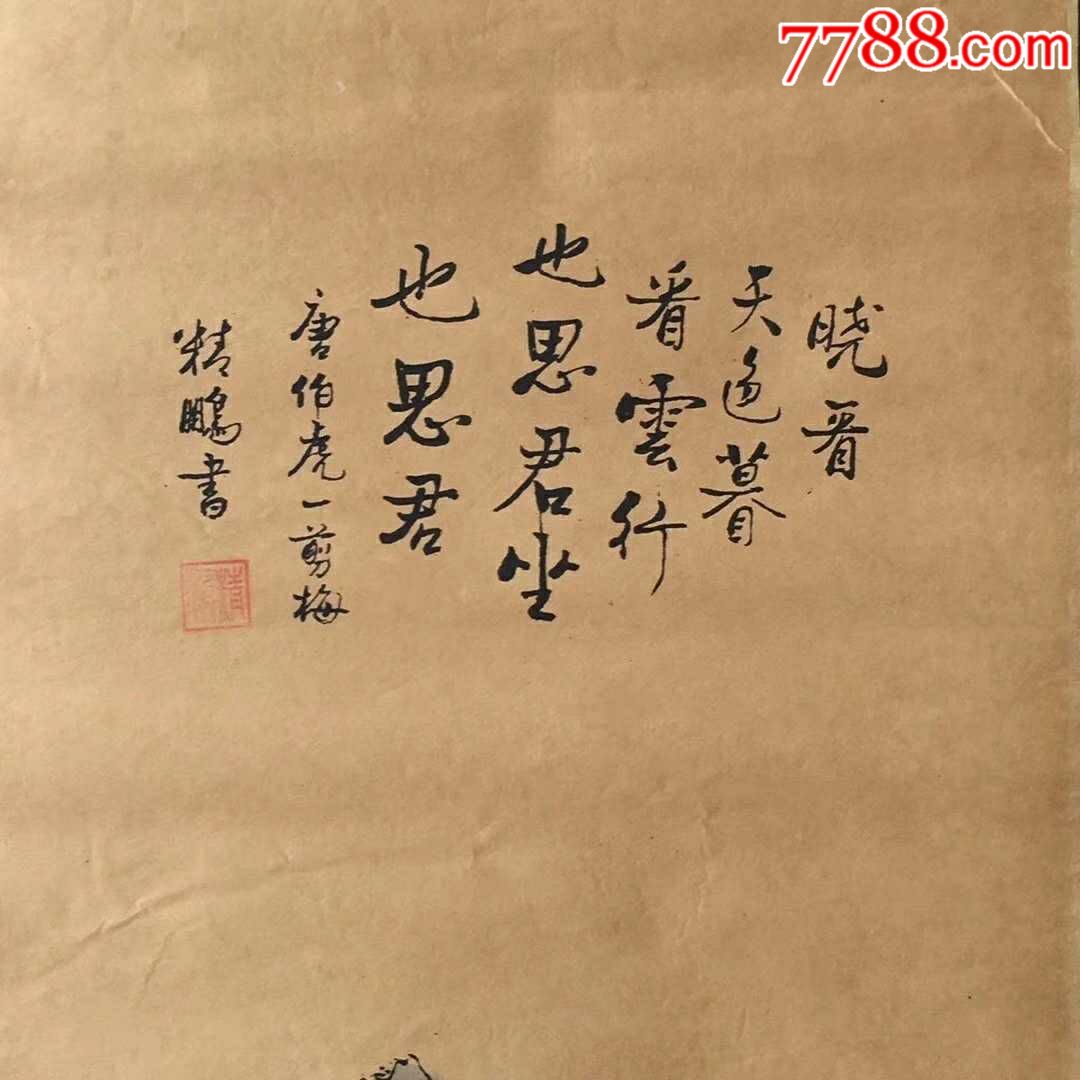 7788.com
晓看
天色暮
看雲行
也思君坐
也思君
唐伯虎一剪梅
精鵬書